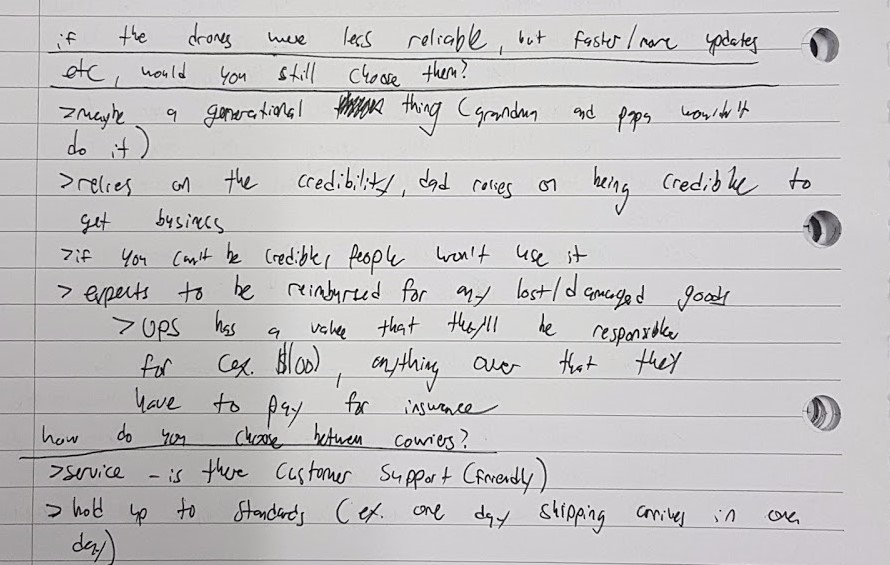 if the drones were less reliable, but faster/more updates
etc, would you still choose them?
> maybe a generational thing (grandma and papa wouldn't
do it)
> relies on the credibility, dad relies on being credible to
get business
> if you can't be credible, people won't use it
> expects to be reimbursed for any lost/damaged goods
> UPS has a value that they'll be responsible
for (ex. $100), anything over that they
have to pay for insurance
how do you choose between couriers?
> service - is there customer support (friendly)
> hold up to standards (ex. one day shipping arrives in one
day)